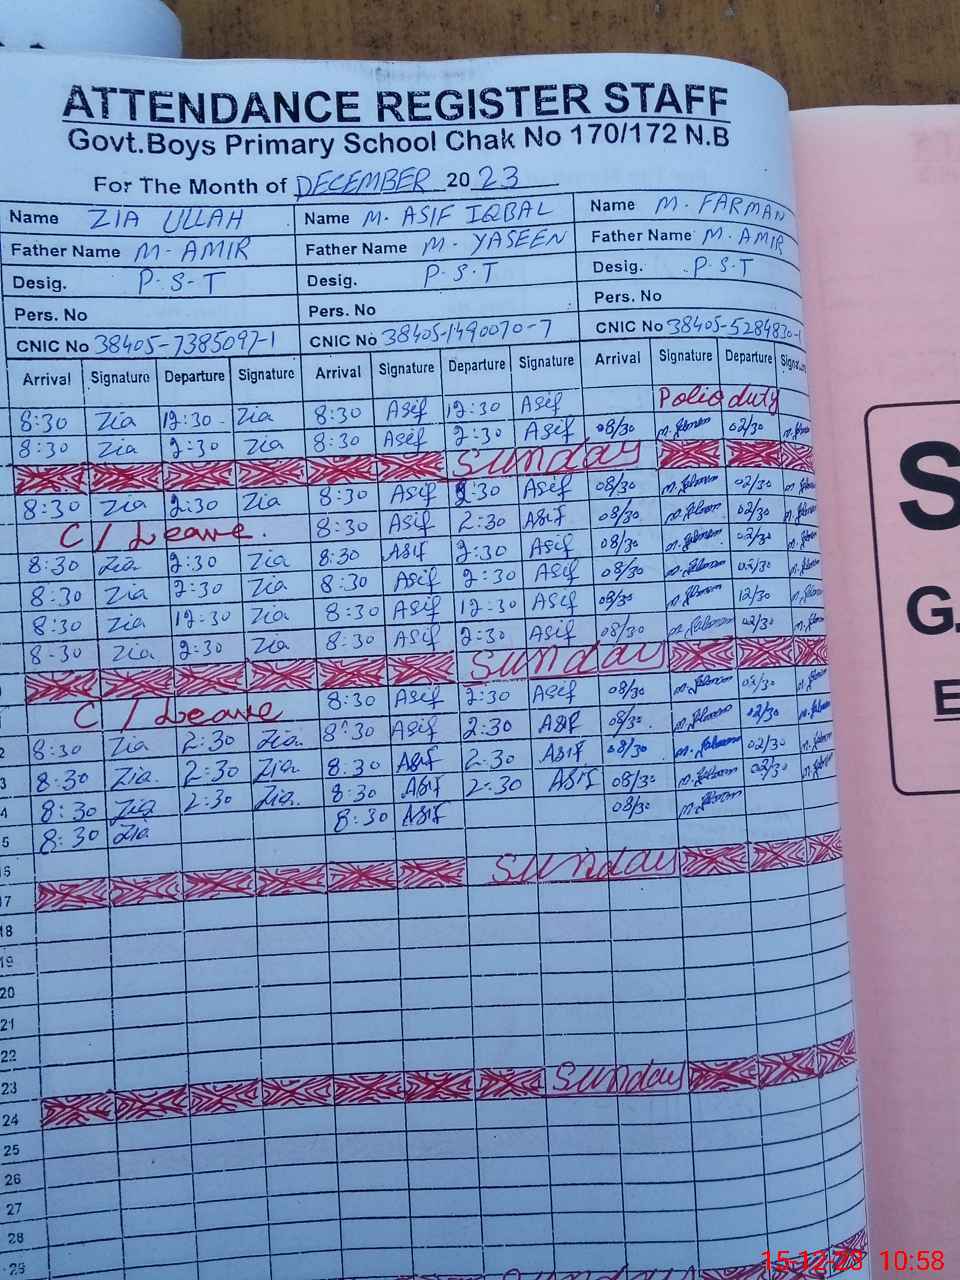 ATTENDANCE REGISTER STAFF
Govt.Boys Primary School Chak No 170/172 N.B
For The Month of DECEMBER 2023
Name ZIA ULLAH Name M. ASIF IQBAL Name M. FARMAN
Father Name M. AMIR Father Name M. YASEEN Father Name M. AMIR
Desig. P.S.T Desig. P.S.T Desig. P.S.T
Pers. No Pers. No Pers. No
CNIC No 38405-7385097-1 CNIC No 38405-1490070-7 CNIC No 38405-5284830-1
Arrival Signature Departure Signature Arrival Signature Departure Signature Arrival Signature Departure
8:30 Zia 12:30 Zia 8:30 Asif 12:30 Asif Polio duty
8:30 Zia 2:30 Zia 8:30 Asif 2:30 Asif 08/30 02/30
Sunday
8:30 Zia 2:30 Zia 8:30 Asif 2:30 Asif 08/30 02/30
C/Leave. 8:30 Asif 2:30 ASIF 08/30 02/30
8:30 Zia 2:30 Zia 8:30 ASIF 2:30 Asif 08/30 02/30
8:30 Zia 2:30 Zia 8:30 Asif 2:30 Asif 08/30 02/30
8:30 Zia 12:30 Zia 8:30 Asif 12:30 Asif 08/30 12/30
8-30 Zia 2:30 Zia 8:30 Asif 2:30 Asif 08/30 02/30
Sunday
C/Leave 8:30 Asif 2:30 Asif 08/30 02/30
8:30 Zia 2:30 Zia 8:30 Asif 2:30 ASIF 08/30 02/30
8:30 Zia. 2:30 Zia 8:30 ASIF 2:30 ASIF 08/30 02/30
8:30 Zia 2:30 Zia. 8:30 ASIF 2:30 ASIF 08/30 02/30
8:30 Zia 8:30 ASIF 08/30
Sunday
17
18
19
20
21
22
23 Sunday
24
25
26
27
28
29
S
G.
E
15-12-23 10:58